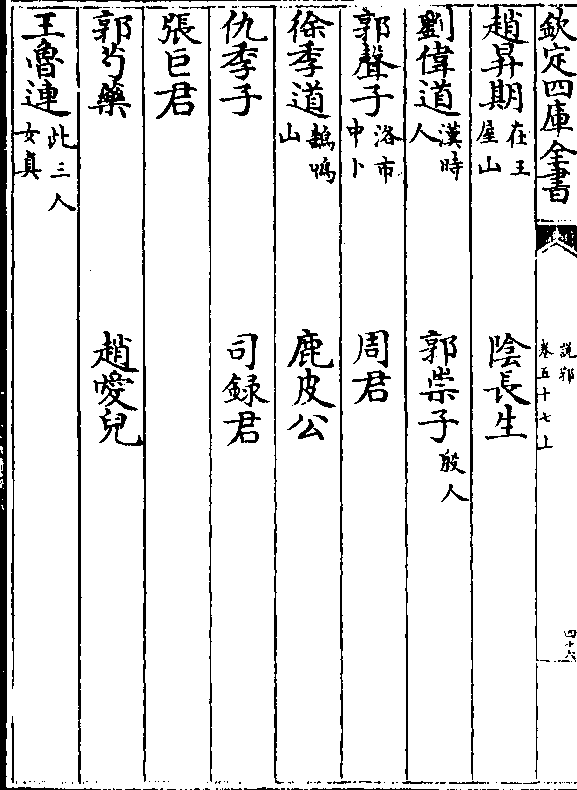 欽定四庫全書
說郛
卷五十七上
四十六
趙昇期在王屋山
陰長生
劉偉道漢時人
郭崇子殷人
郭聲子洛市中卜
周君
徐季道鵲鳴山
鹿皮公
仇季子
司錄君
張巨君
郭芍藥
趙愛兒
王魯連此三人女真